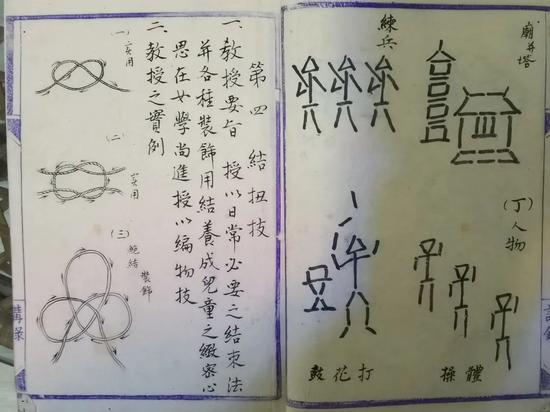 廟并塔
練兵
(丁)人物
體操
打花鼓
第四 結扭技
一. 教授要旨 授以日常必要之結束法
并各種裝飾用結養成兒童之緻密心
思在女學尚進授以編物技
二. 教授之實例
(一)
實用
(二)
實用
(三)
裝飾